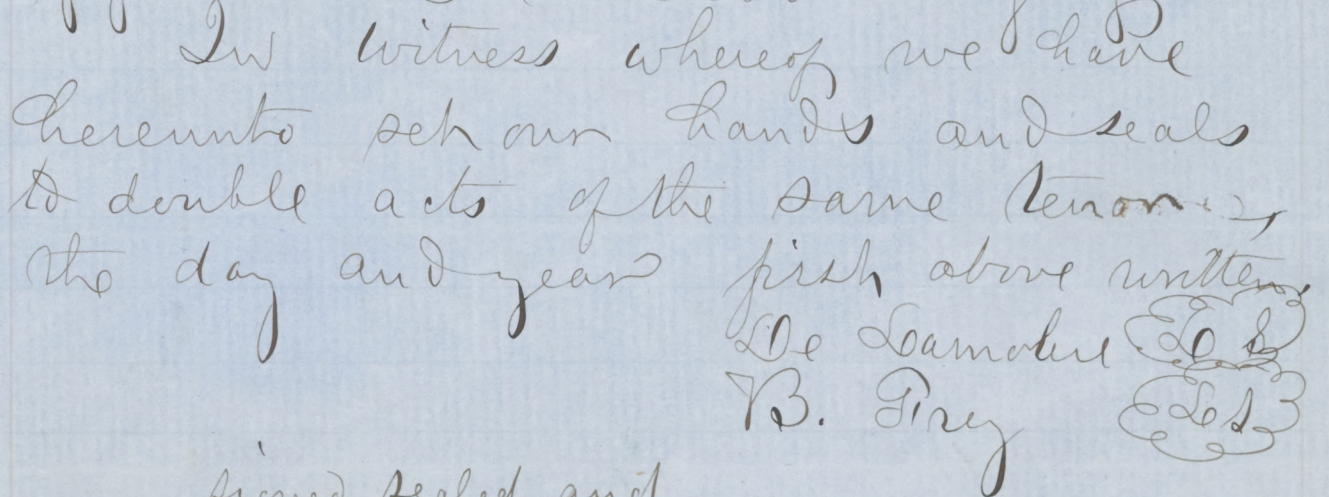 In witness whereof we have
hereunto set our hands and seals
to double acts of the same tenor,
the day and year first above written,
De L S
B. Frey L S
signed sealed and